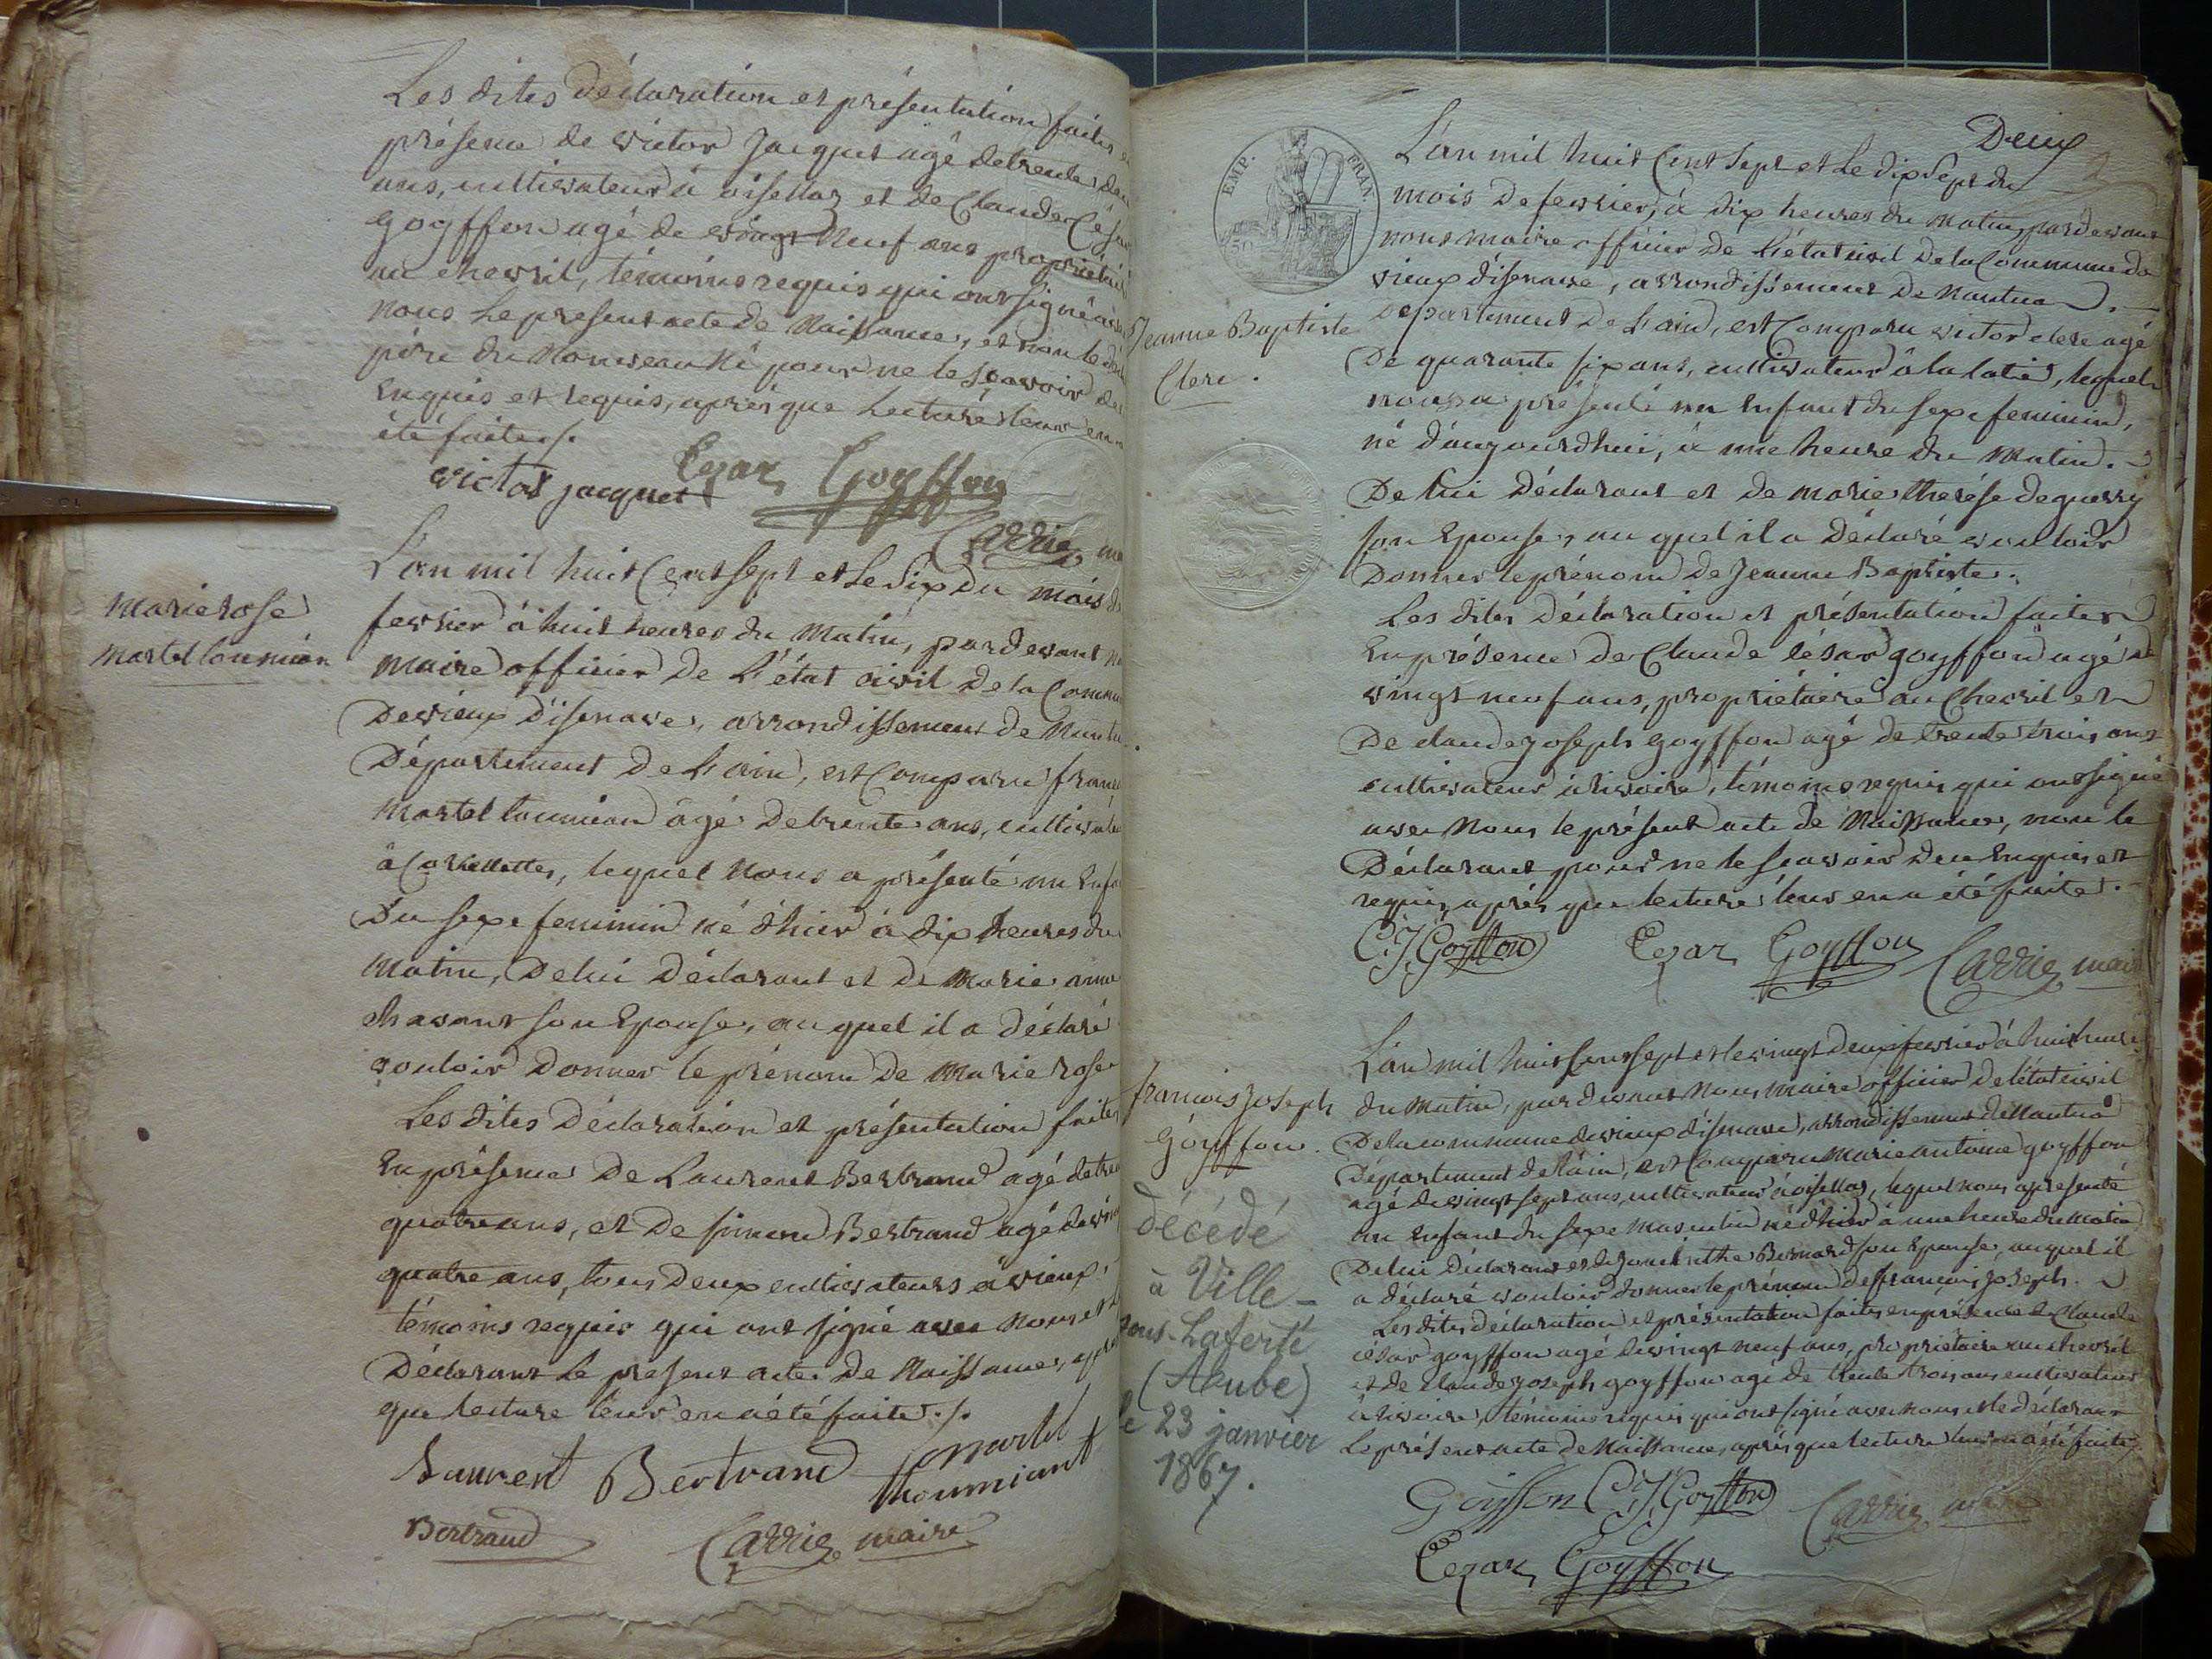 Les dites déclaration et présentation faites
présence de victor Jacquet agé de trente deux
ans, cultivateur à oisellaz et de Claude César
goyffon agé de vingt neuf ans propriétaire
au chevril, témoins requis qui ont signé avec
nous le present acte de Naissance, et non le
père du Nouveau né pour ne le sçavoir de
Enquis et requis, après que lecture leur en
été faite ./.
victor jacquet Cezar Goyffon
Carrie
L'an mil huit Cent sept et le six du mois de
fevrier à huit heures du Matin, pardevant
Marie rose
Martel tounian
Maire officier De L'état civil De la Commune
De vieux d'isenave, arrondissement De Nantua
Département De L'ain, est Comparu françois
Martel tounian âgé De trente ans, cultivateur
à Corvellettes, lequel Nous a présenté un Enfant
Du sexe feminin né d'hier à dix heures du
Matin, De lui Déclarant et De Marie anne
chavant son Epouse, au quel il a Déclaré
vouloir Donner le prénom De Marie rose
Les dites Déclaration et présentation faites
En présence De Laurent Bertrand agé de trente
quatre ans, et De simond Bertrand agé de vingt
quatre ans, tous Deux cultivateurs à vieux,
témoins requis qui ont signé avec Nous et le
Déclarant Le present acte De Naissance, après
que lecture leur en a été faite ./.
Laurent Bertrand martel
thoumiant
Bertrand Carrie maire
Deux
2
EMP. FRAN.
L'an mil huit Cent sept et Le dix sept du
mois De fevrier, à dix heures du Matin, pardevant
nous maire officier De L'état civil De la Commune de
vieux d'isenave, arrondissement De Nantua
Departement De L'ain, est Comparu victor clerc agé
Jeanne Baptiste
Clerc.
De quarante six ans, cultivateur à la latie, lequel
nous a présenté un Enfant du sexe feminin,
né d'aujourd'hui, à une heure du Matin.
De lui Déclarant et De marie therése deguerry
son Epouse, au quel il a Déclaré vouloir
Donner le prénom De Jeanne Baptiste.
Les dites Déclaration et présentation faites
En présence De Claude César goyffon agé de
vingt neuf ans, propriétaire au Chevril et
De claude joseph goyffon agé de trente trois ans
cultivateur à lisoire, témoins requis qui ont signé
avec Nous le présent acte de Naissance, non le
Déclarant pour ne le sçavoir De ce Enquis et
requis, après que lecture leur en a été faite.
C. J. Goyffon Cezar Goyffon Carrie maire
L'an mil huit Cent sept et le vingt deux fevrier à huit heures
du Matin, par devant Nous maire officier De l'état civil
De la commune de vieux d'isenave, arrondissement De Nantua
Département de l'ain, est Comparu Marie antoine goyffon
françois joseph
Goyffon.
agé de vingt sept ans, cultivateur à oisellaz, lequel nous a présenté
un Enfant du sexe Masculin né d'hier à une heure du Matin
De lui Déclarant et de Bernard son Epouse, au quel il
a déclaré vouloir donner le prénom de françois joseph.
Les dites déclaration et présentation faites en présence de Claude
césar goyffon agé de vingt neuf ans, propriétaire au chevril
et de Claude joseph goyffon agé de trente trois ans cultivateur
à lisoire, témoins requis qui ont signé avec nous et le déclarant
Le présent acte de Naissance, après que lecture leur en a été faite.
décédé
à Ville-
sous-Laferté
(Aube)
le 23 janvier
1867.
Goiffon C. J. Goyffon Carrie maire
Cezar Goyffon